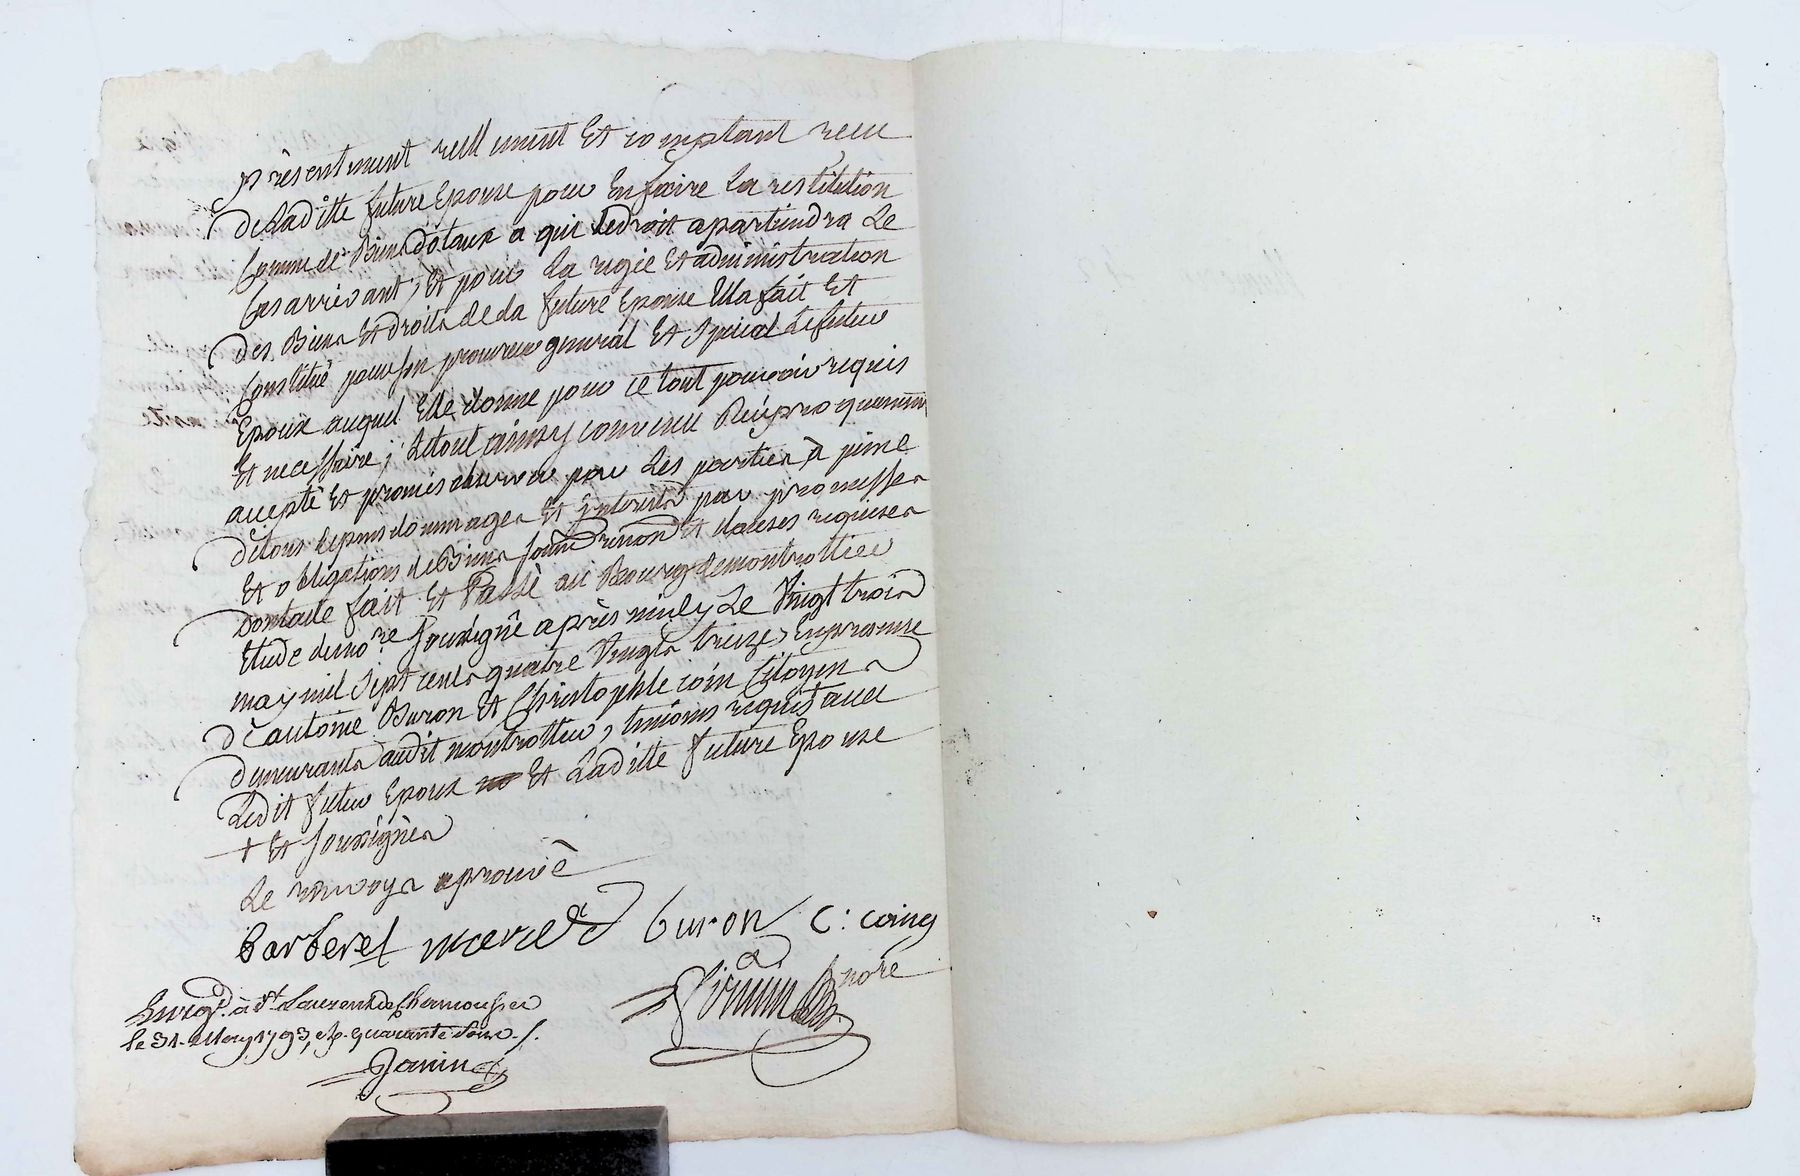 présentement reellement Et comptant recu
de Laditte future Epouse pour En faire La restitution
comme de Biens dotaux a qui de droit apartiendra Le
Cas arrivant, Et pour La regie Et administration
des Biens Et droits de La future Epouse Ella fait Et
Constitué pour son procureur general Et special Le futur
Epoux auquel Elle donne pour ce tout pouvoir requis
Et necessaire; Le tout ainsy convenu Reciproquement
accepté Et promis observer par Les parties à peine
de tous depens dommages Et interets par promesses
Et obligations de Biens soum renon Et clauses requises
Dont acte fait Et Passé au Bourg de montrottier
Etude du no.re soussigné après midy Le Vingt trois
may mil sept cents quatre Vingts treize, En presence
d'antoine Buron Et Christophle coin Citoyens
demeurants audit montrottier, temoins requis avec
Ledit futur Epoux Et Laditte future Epouse
+ Et soussignés
Le renvoys aprouvé
Barberet mercier buron C: coing
no.re
Enreg.é à S.t Laurent de Chamousset
le 31. May 1793, quarante sous ./.
Janin